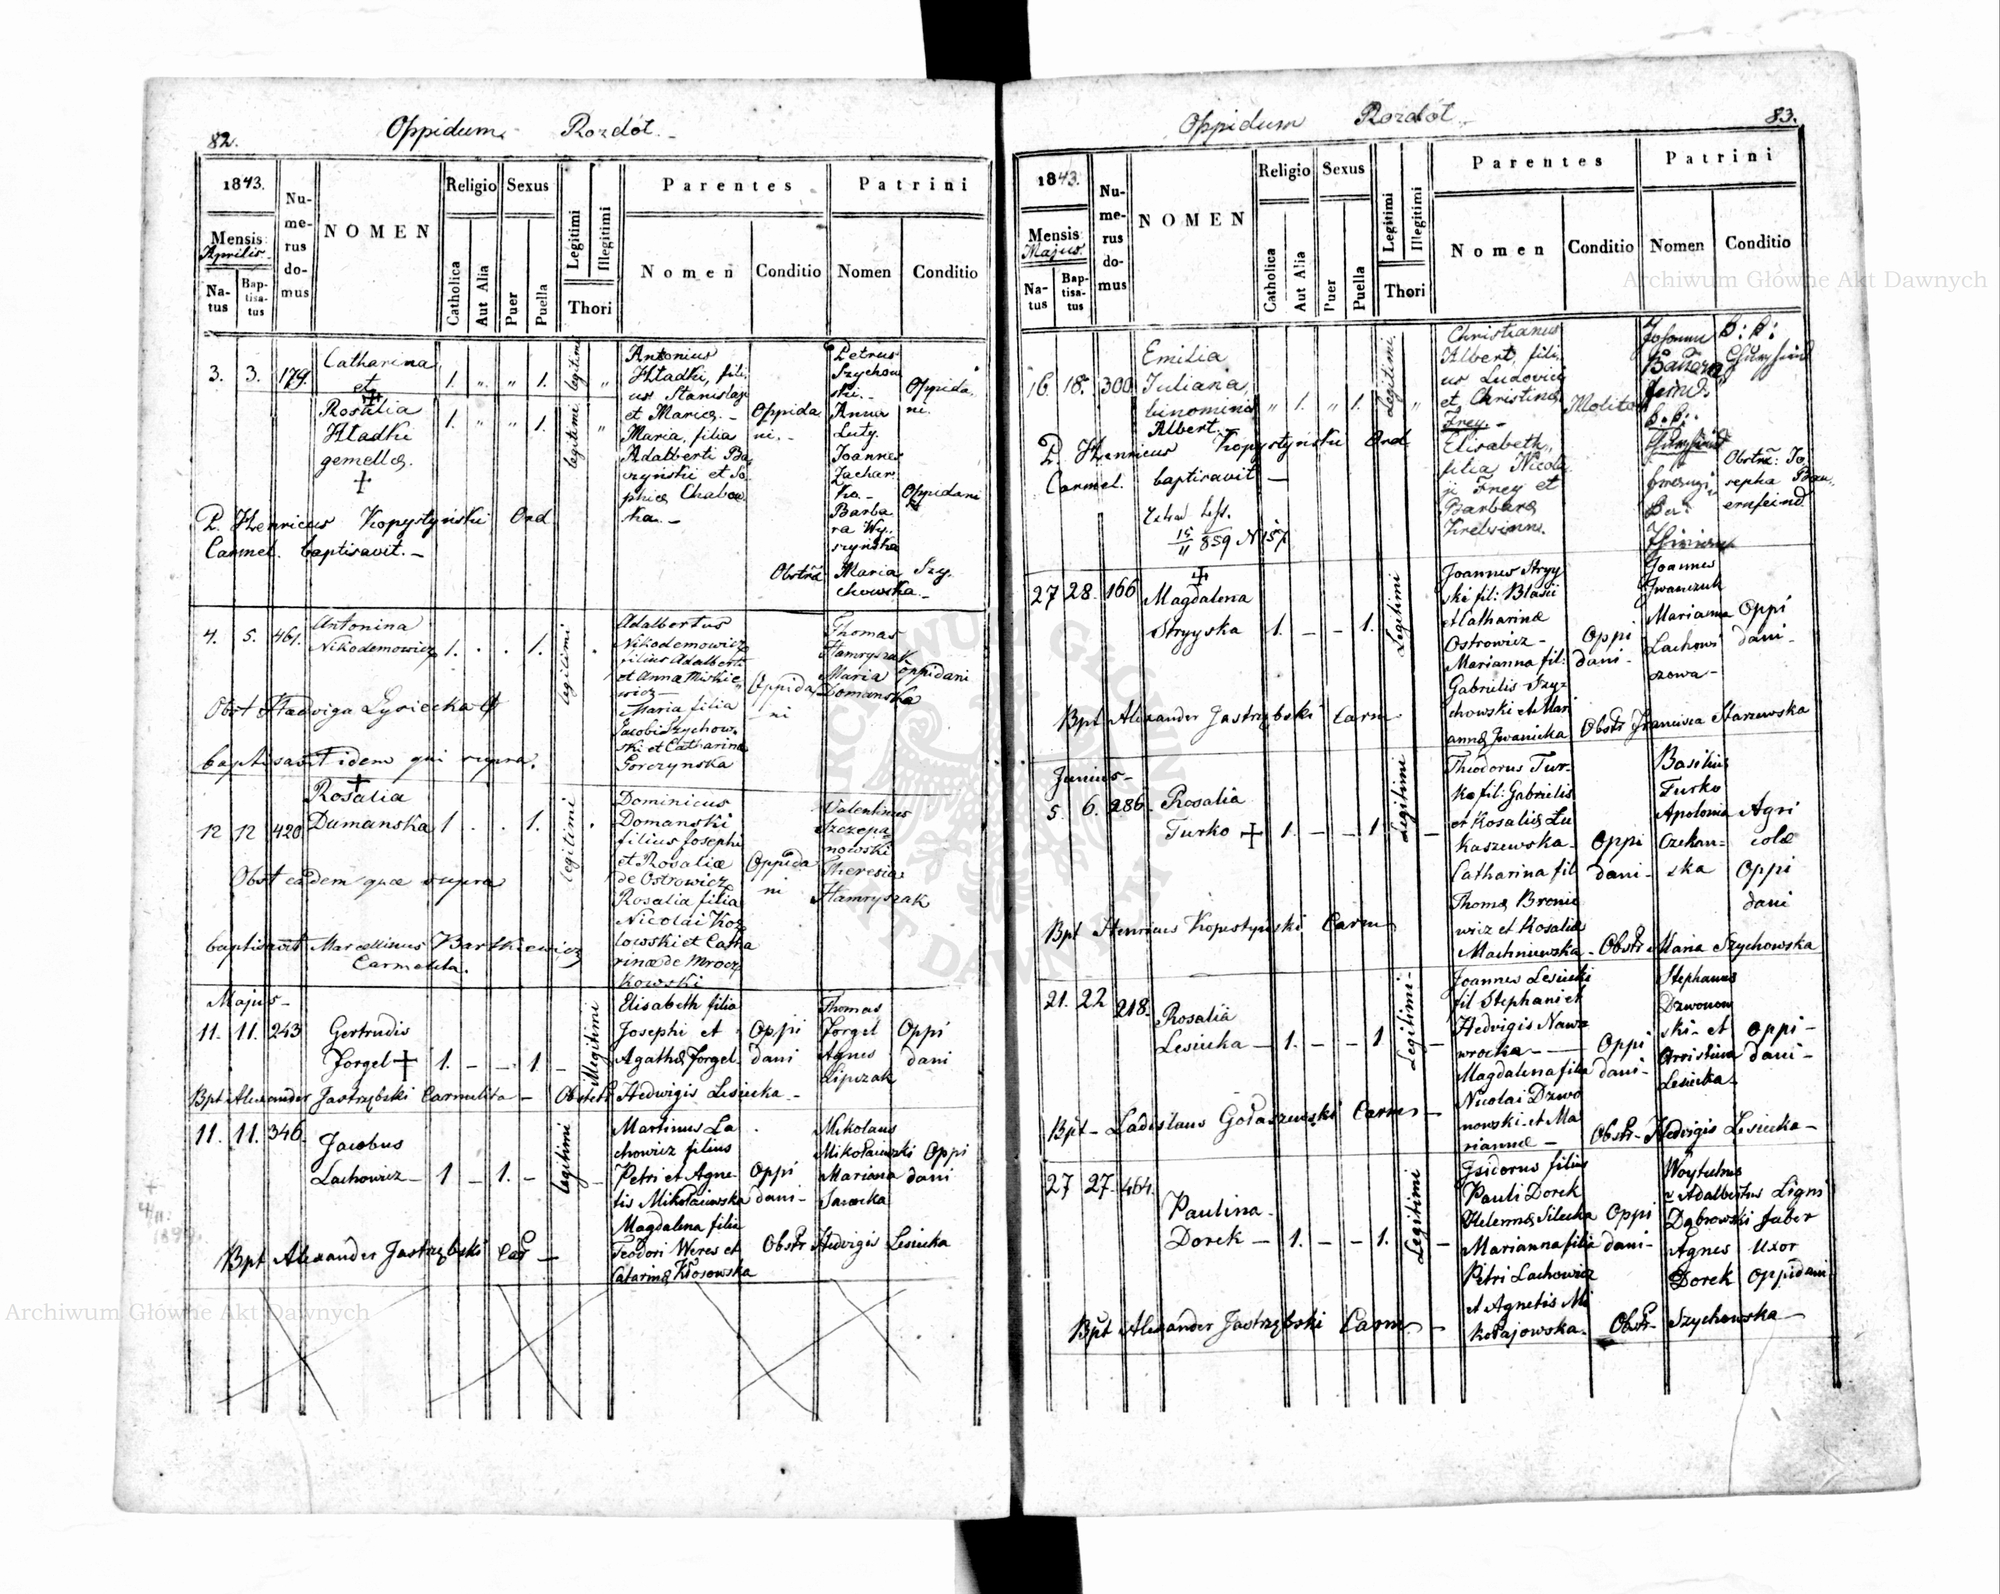 82.
Oppidum Rozdół.
1843.
Mensis
Aprilis
Na-
tus
Bap-
tisa-
tus
Nu-
me-
rus
do-
mus
NOMEN
Religio
Catholica
Aut Alia
Sexus
Puer
Puella
Legitimi
Illegitimi
Thori
Parentes
Nomen
Conditio
Patrini
Nomen
Conditio
3. 3. 179.
Catharina
et
Rosalia
Hładki
gemellæ.
1. „ „ 1. legitimi „
1. „ „ 1. legitimi „
Antonius
Hładki, fili-
us Stanislai
et Mariæ. –
Maria, filia
Adalberti Ba-
czyński et So-
phiæ
Oppida
ni. –
Petrus
Szychow
ski. –
Anna
Luty.
Joannes
Zachar
ko. –
Barba
ra Wy-
szyńska
Oppida
ni.
Oppidani
P. Henricus Kopystyński Ord
Carmel. baptisavit. –
Obstrā Maria Szy-
chowska. –
4. 5. 461.
Antonina
Nikodemowicz
1. . . 1. legitimi .
Adalbertus
Nikodemowicz
filius Adalberti
et Annæ Miskie
wicz –
Maria filia
Jacobi Szychow-
ski et Catharinæ
Gorczynska
Oppida
ni
Thomas
Hamryszak
Maria
Domanska
oppidani
Obst Hedviga Lysiecka
baptisavit idem qui supra.
12 12 420
Rosalia
Dumanska
1 . . 1. legitimi .
Dominicus
Domanski
filius Josephi
et Rosaliæ
de Ostrowicz
Rosalia filia
Nicolai Koz
lowski et Catha
rinæ de Mrocz
kowski
Oppida
ni
Valentinus
Szczepa
nowski
Theresia
Hamryszak
Obst eadem quæ supra
baptisavit Marcellinus Bartkiewicz
Carmelita.
Majus –
11. 11. 243
Gertrudis
Forgel
1. – – 1. – Illegitimi
Elisabeth filia
Josephi et
Agathæ Forgel
Oppi
dani
Thomas
Forgel
Agnes
Lipczak
Oppi
dani
Bpt Alexander Jastrzębski Carmelita – Obstetr Hedwigis Lesiecka –
11. 11. 346
Jacobus
Lachowicz –
1 – 1. – legitimi –
Martinus La
chowicz filius
Petri et Agne-
tis Mikołaiewska
Magdalena filia
Teodori Weres et
Catarinæ Kłosowska
Oppi
dani –
Mikolaus
Mikołaiewski
Mariana
Oppi
dani
Bpt Alexander Jastrzębski Car –
Obstr Hedvigis Lesiecka
Oppidum Rozdół.
83.
1843.
Mensis
Majus.
Na-
tus
Bap-
tisa-
tus
Nu-
me-
rus
do-
mus
NOMEN
Religio
Catholica
Aut Alia
Sexus
Puer
Puella
Legitimi
Illegitimi
Thori
Parentes
Nomen
Conditio
Patrini
Nomen
Conditio
16. 18. 300
Emilia
Juliana,
binominis
Albert.
„ 1. „ 1. Legitimi. „
Christianus
Albert, fili-
us Ludovici
et Christinæ
Frey. –
Elisabeth,
filia Nicola
ji Frey et
Barbaræ
Molitor
P. Henricus Kopystyński Ord
Carmel. baptisavit –
Obstrā: Jo-
sepha Bau-
ernfeind
27 28. 166
Magdalena
Stryyska
1. – – 1. Legitimi
Joannes Stryy
ski fil: Blasii
et Catharinæ
Ostrowicz –
Marianna fil:
Gabrielis Szy-
chowski et Mari
annæ Iwanicka
Oppi
dani –
Joannes
Iwanczuk
Marianna
Lachowi
czowa –
Oppi
dani –
Bpt Alexander Jastrzębski Carm –
Obstr Francisca Starzewska
Junius –
5. 6. 286.
Rosalia
Turko
1. – – 1 Legitimi –
Theodorus Tur-
ko fil: Gabrielis
et Rosaliæ Lu
kaszewska –
Catharina fil
Thomæ Bronie
wicz et Rosaliæ
Machniewska –
Oppi
dani –
Basilius
Turko
Apolonia
Czekan-
ska
Agri
colæ
Oppi
dani
Bpt Henricus Kopystyński Carm
Obstr Maria Szychowska
21. 22 218.
Rosalia
Lesiecka –
1. – – 1 Legitimi –
Joannes Lesiecki
fil Stephani et
Hedvigis Naw
wrocka –
Magdalena filia
Nicolai Dzwo
nowski et Ma
riannæ –
Oppi
dani –
Stephanus
Dzwonow
ski – et
Christina
Lesiecka
Oppi –
dani –
Bpt – Ladislaus Gołaszewski Carm –
Obstr – Hedvigis Lesiecka –
27 27. 464.
Paulina
Dorek –
1. – – 1. Legitimi –
Isidorus filius
Pauli Dorek
Helenæ Silecka
Marianna filia
Petri Lachowicz
et Agnetis Mi
kołajowska.
Oppi
dani –
Adalbertus
Dąbrowski
Agnes
Dorek
Ligni
faber
Uxor
Oppidani
Bpt Alexander Jastrzębski Carm –
Obstr Szychowska –
Archiwum Główne Akt Dawnych
Archiwum Główne Akt Dawnych